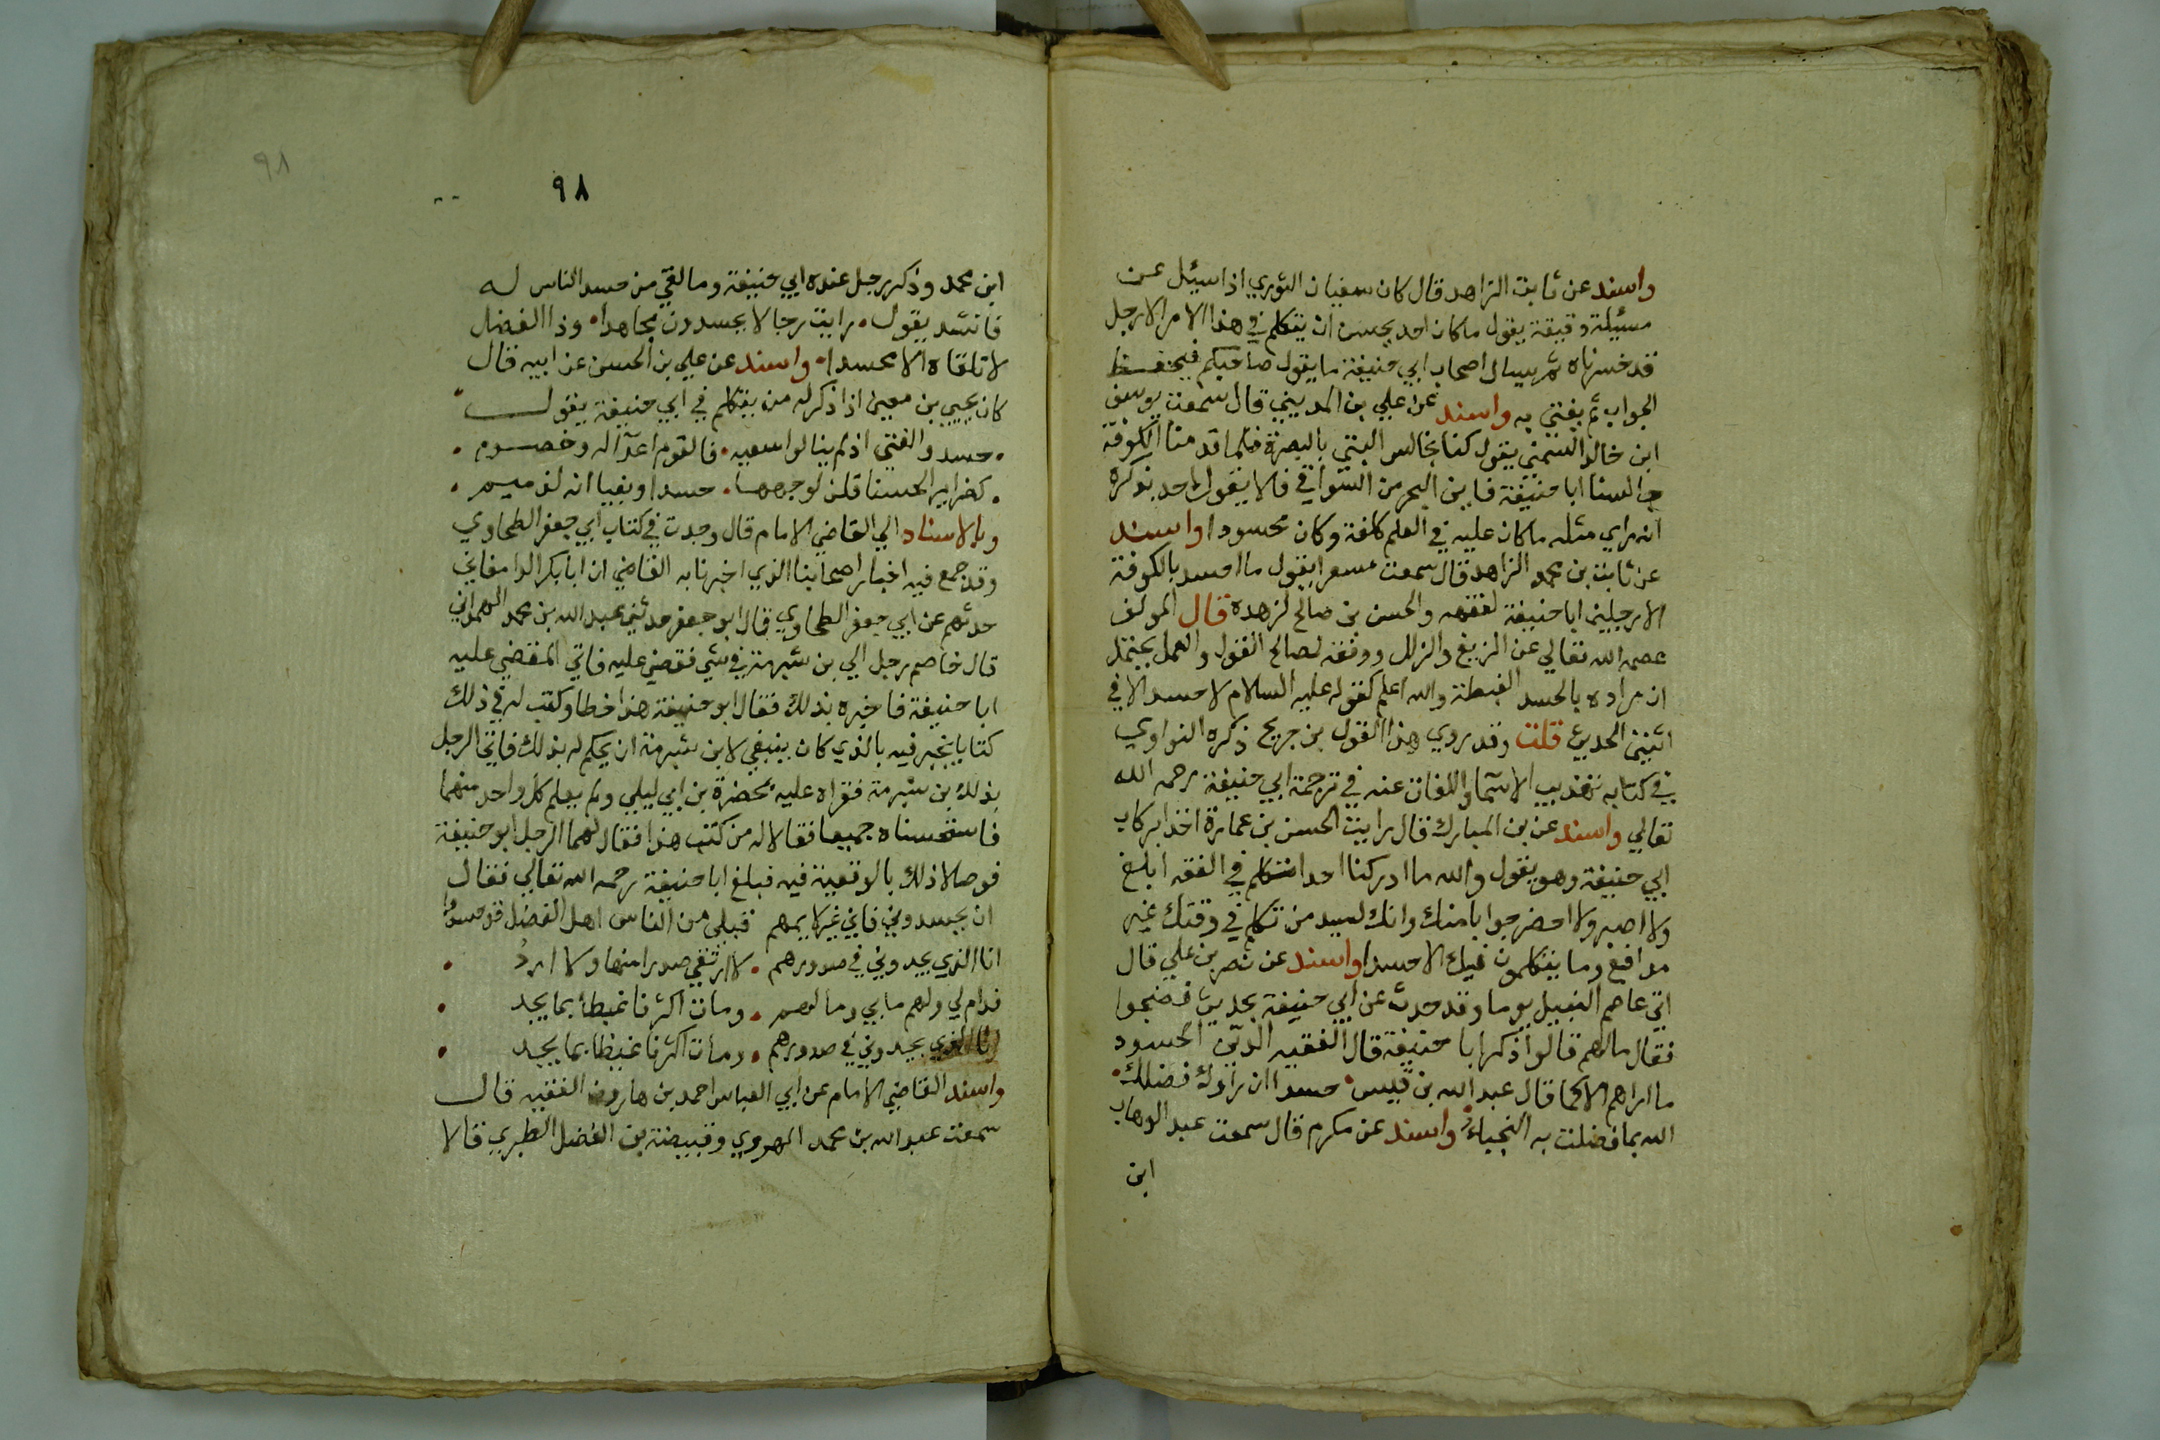 واسند عن ثابت الزاهد قال كان سفيان الثوري اذا سيئل عن
مسئيلة دقيقة يقول ما كان احد يحسن ان يتكلم في هذا الامر الا رجل
قد حسرناه ثم يسال اصحاب ابي حنيفة ما يقول صاحبكم فيحفظ
الجواب ثم يفتي به واسند عن علي بن المديني قال سمعت يوسف
ابن خالد السمتي يقول كنا نجالس البتي بالبصرة فلما قدمنا الكوفة
جالسنا ابا حنيفة فاين البحر من السواقي فلا يقول احد يذكره
انه راي مثله ما كان عليه في العلم كلفة وكان محسودا واسند
عن ثابت بن محمد الزاهد قال سمعت مسعرا يقول ما احسد بالكوفة
الا رجلين ابا حنيفة لفقهه والحسن بن صالح لزهده قال المولف
عصمه الله تعالي عن الزيغ والزلل ووفقه لصالح القول والعمل يحتمل
ان مراده بالحسد الغبطة والله اعلم كقوله عليه السلام لا حسد الا في
اثنين الحديث قلت وقد روي هذا القول بن جريج ذكره النواوي
في كتابه تهذيب الاسما واللغات عنه في ترجمة ابي حنيفة رحمه الله
تعالي واسند عن بن المبارك قال رايت الحسن بن عمارة اخذا بركاب
ابي حنيفة وهو يقول والله ما ادركنا احدا تكلم في الفقه ابلغ
ولا اصبر ولا احضر جوابا منك وانك لسيد من تكلم في وقتك غير
مدافع وما يتكلمون فيك الا حسدا واسند عن نصر بن علي قال
اتي عاصم النبيل يوما وقد حدث عن ابي حنيفة بحديث فضجوا
فقال مالهم قالوا ذكر ابا حنيفة قال الفقيه الدين المحسود
ما اراهم الا كما قال عبد الله بن قيس حسدا ان راوك فضلك
الله بما فضلت به النجباء واسند عن مكرم قال سمعت عبد الوهاب
ابن
٩٨
٩٨
ابن محمد وذكر رجل عنده ابي حنيفة وما لقي من حسد الناس له
فانشد يقول رايت رجالا يحسدون مجاهدا وذا الفضل
لا تلقاه الا محسدا واسند عن علي بن الحسن عن ابيه قال
كان يحيي بن معين اذا ذكر له من يتكلم في ابي حنيفة يقول
حسدوا الفتي اذ لم ينالوا سعيه فالقوم اعداله وخصوم
كضراير الحسنا قلن لوجهها حسدا وبغيا انه لدميم
وبالاسناد الي القاضي الامام قال وجدت في كتاب ابي جعفر الطحاوي
وقد جمع فيه اخبار اصحابنا الذي اخبرنا به القاضي ان ابا بكر الدامغاني
حدثهم عن ابي جعفر الطحاوي قال ابو جعفر حدثني عبد الله بن محمد الهمداني
قال خاصم رجل الي بن شبرمة في شي فقضي عليه فاتي المقضي عليه
ابا حنيفة فاخبره بذلك فقال ابو حنيفة هذا خطا وكتب له في ذلك
كتابا يخبر فيه بالذي كان ينبغي لابن شبرمة ان يحكم له بذلك فاتي الرجل
بذلك بن شبرمة فقراه عليه بحضرة بن ابي ليلي ولم يعلم كل واحد منهما
فاستحسناه جميعا فقالا له من كتب هذا فقال لهما الرجل ابو حنيفة
فوصلا ذلك بالوقعية فيه فبلغ ابا حنيفة رحمه الله تعالي فقال
ان يحسدوني فاني غير لايمهم قبلي من الناس اهل الفضل قد حسدوا
انا الذي يجدوني في صدورهم لا ارتقي صدرا منها ولا ارد
فدام لي ولهم ما بي وما لهم ومات اكثرنا غيظا بما يجد
انا الذي يجدوني في صدورهم ومات اكثرنا غيظا بما يجد
واسند القاضي الامام عن ابي العباس احمد بن هارون الفقيه قال
سمعت عبد الله بن محمد الهروي وقبيصة بن الفضل الطبري قالا